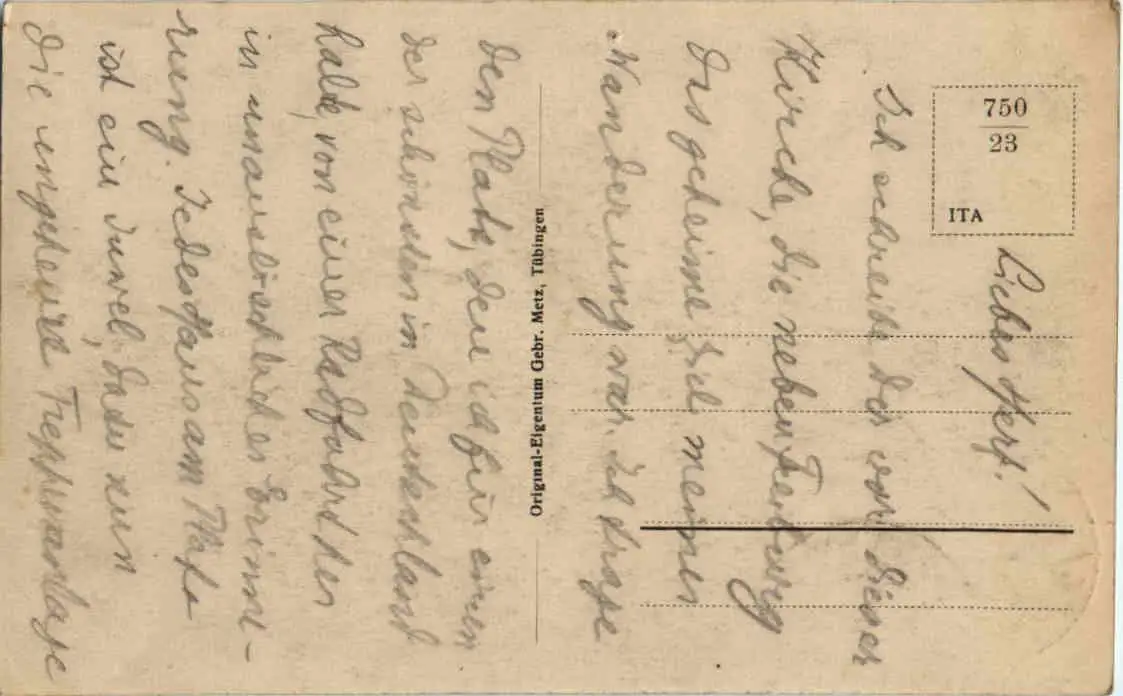 750
23
ITA
Original-Eigentum Gebr. Metz, Tübingen
Liebes Herz!
Ich schreibe dir von dieser
Kirche, die neben Freiburg
das geheime Ziel meiner
Wanderung war. Ich trage
den Platz, den ich für einen
der schönsten in Deutschland
halte, von einer Radfahrt her
in unauslöschlicher Erinne-
rung. Jedes Haus am Platz
ist ein Juwel, dazu nun
die ungeheure Treppenanlage